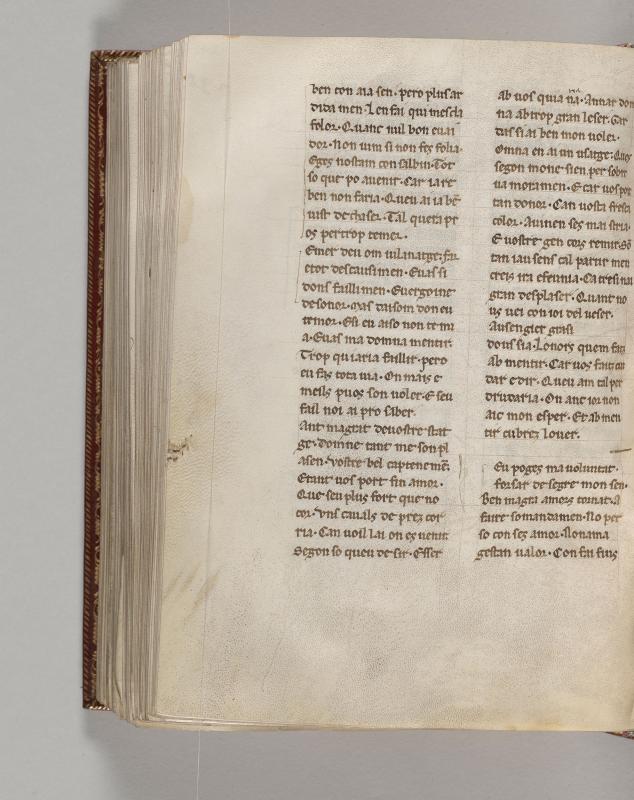 ben con aia sen. pero plus ar
dida men. Len fai qui mescla
folor. Quanc nul bon euai
dor. Non uim si non fes folia.
Eges nostam con salbir. Tot
so que po auenir. Car ia re
ben non faria. Queu ai ia bē
uist de chaser. Tal queta pr
os per trop temer.
Emer den om uilanatge: fu
etor descausimen. Euas si
dons faillimen. Euergoine
desonor. mas daisom don eu
temor. Esi en aiso non te mi
a. Euas ma domna mentir.
Trop qu iaria faillir. pero
eu fas tota uia. On mais e
meils puos son uoler. E seu
fail noi ai pro saber.
Ant magrat deuostre stat
ge. domne tant me son pl
asen. vostre bel captenemē.
Etant uos port fin amor.
Que seu plus fort que no
cor. vns cauals de prez cor
ria. Can uoil lai on es uenir
Segon so queu desir. Esser
Ab uos quia na. Annar don
na ab trop gran leser. Ger
das si ai ben mon uoler.
Omna en ai un usatge: Que
segon mone sien per sobre
ua mot amen. E car uos por
tan donor. Can uosta fresca
color. Auinen ses mai stria.
E uostre gen cors remir. Sō
tan iau sens cal partir men
creis ira efeunia. Ca tresi nai
gran desplaser. Quant no
us uei con ioi del ueser.
Ausengier grasi
dous sia. Lonors quem faiz
Ab mentir. Car uos faitz cui
dar edir. Queu am tal per
drudaria. On anc ioi non
aic mon esper. Et ab men
tir cubrez louer.
Eu poges ma uoluntat.
forsar de segre mon sen.
Ben magra amors tornat. A
faire so mandamen. No per
so con ses amor. Nonama
gestan ualor. Con fai fuis